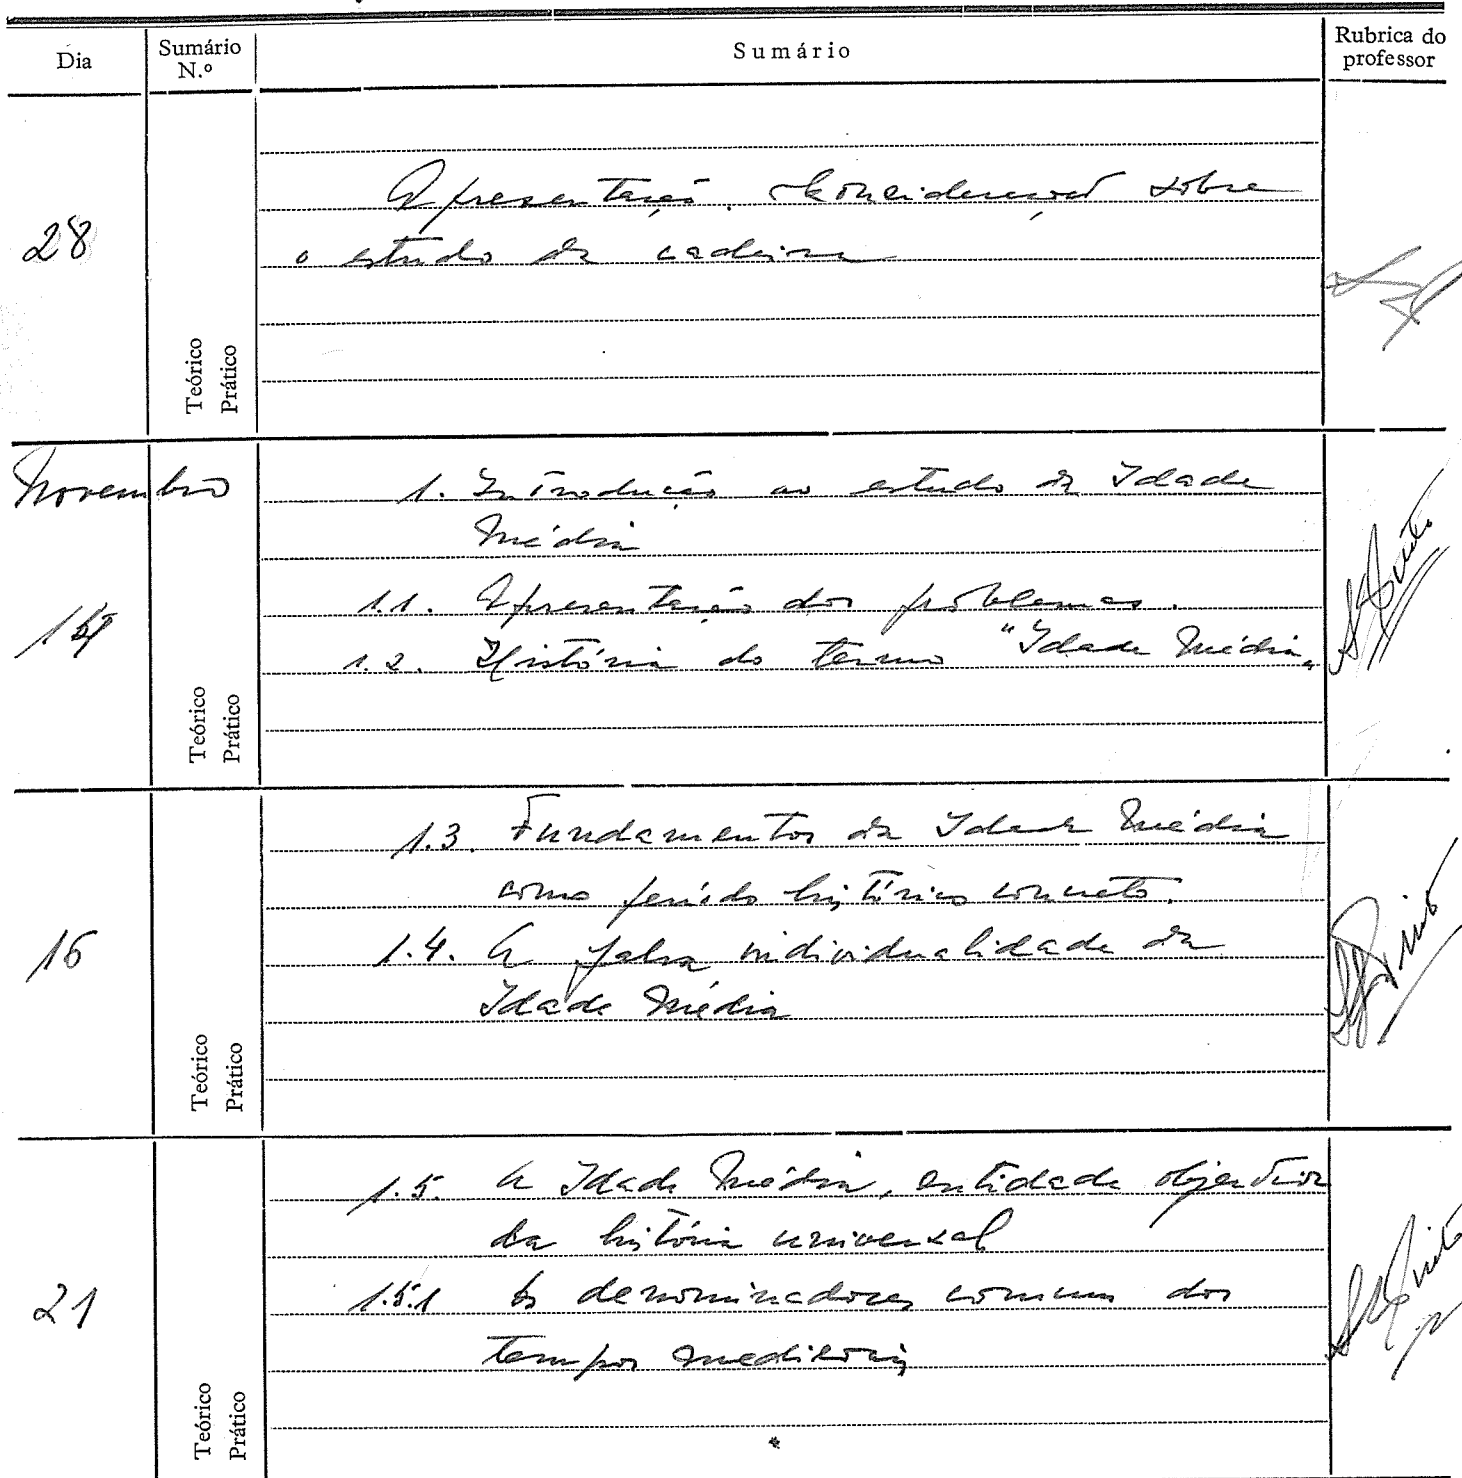 Dia Sumário N.º Sumário Rubrica do professor
Apresentação. Considerações sobre
28
o estudo da cadeira
Teórico
Prático
Novembro
1. Introdução ao estudo da Idade
Média
1.1. Apresentação dos problemas.
14
1.2. História do termo "Idade Média"
Teórico
Prático
1.3. Fundamentos da Idade Média
como período histórico concreto.
16
1.4. A falsa individualidade da
Idade Média
Teórico
Prático
1.5. A Idade Média, entidade objectiva
da história universal
21
1.5.1 Os denominadores comuns dos
tempos medievais
Teórico
Prático